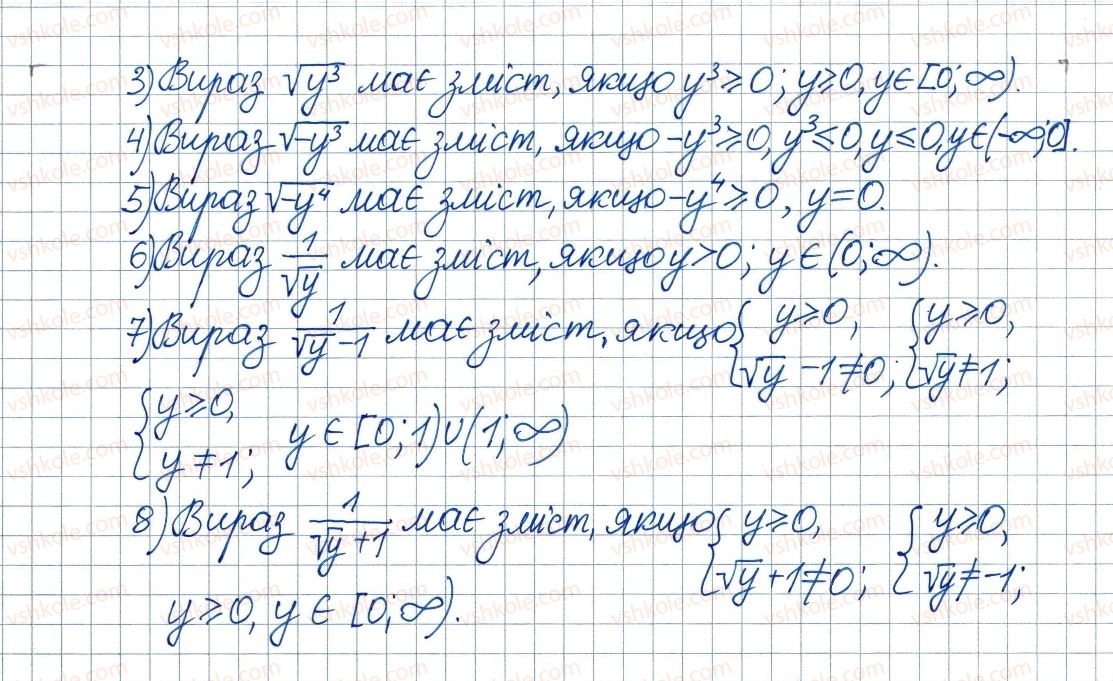 3) Вираз √y³ має зміст, якщо y³ ≥ 0; y ≥ 0, y ∈ [0; ∞).
4) Вираз √-y³ має зміст, якщо -y³ ≥ 0, y³ ≤ 0, y ≤ 0, y ∈ (-∞; 0].
5) Вираз √-y⁴ має зміст, якщо -y⁴ ≥ 0, y = 0.
6) Вираз 1/√y має зміст, якщо y > 0; y ∈ (0; ∞).
7) Вираз 1/(√y - 1) має зміст, якщо { y ≥ 0, √y - 1 ≠ 0; { y ≥ 0, √y ≠ 1;
{ y ≥ 0, y ≠ 1; y ∈ [0; 1) ∪ (1; ∞)
8) Вираз 1/(√y + 1) має зміст, якщо { y ≥ 0, √y + 1 ≠ 0; { y ≥ 0, √y ≠ -1;
y ≥ 0, y ∈ [0; ∞).